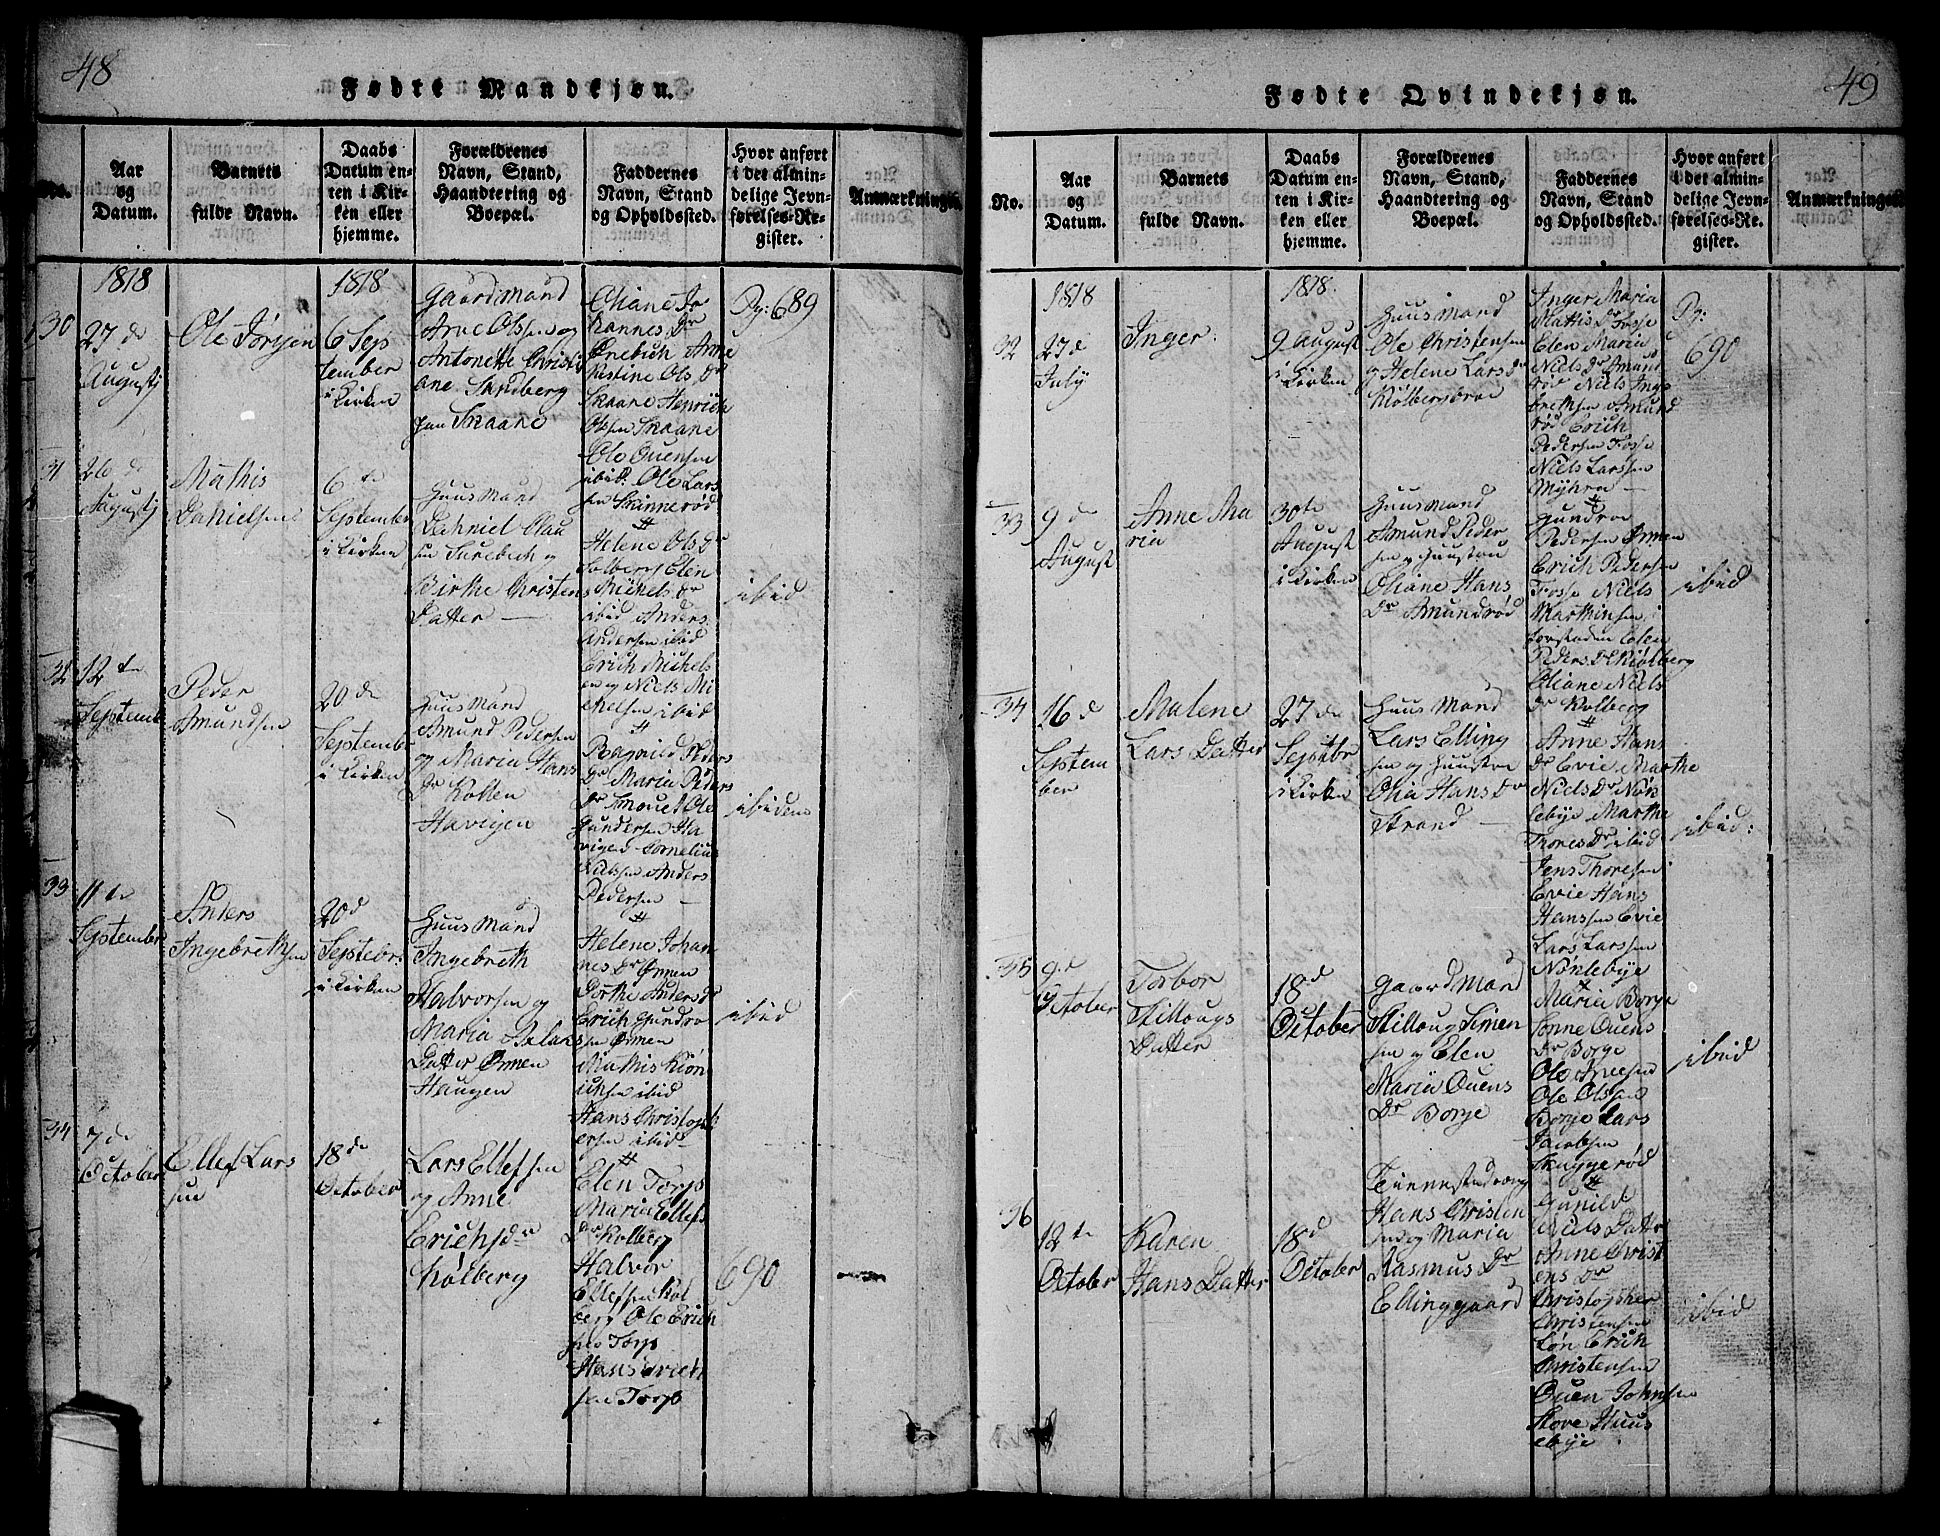 48
Fødte Mandkjøn.
No.
Aar
og
Datum.
Barnets
fulde Navn.
Daabs
Datum en-
ten i Kir-
ken eller
hjemme.
Forældrenes
Navn, Stand,
Haandtering og
Boepæl.
Faddernes
Navn, Stand
og Opholdssted.
Hvor anført
i det almin-
delige Jevn-
førelses-Re-
gister.
Anmærkninger.
1818
30
27 de
Augustj
Ole Jørgen
1818
6 Sep
tember
i Kirken
Gaardmand
Arne Olssen og
Antonette Christi
ane Sandberg
Skaane
Oliane Jo
hannes Dr
Ønebich Anne
Kistine Ols Dr
Skaane Henrich
Olssen Skaane
Ole Ouensen
ibid. Ole Lars
sen Skinnerød
#
Pg: 689
31
26 de
Augustj
Mathis
Danielsen
6 te
September
i Kirken
Huusmand
Dahniel Clau
sen Surebech og
Birthe Christens
Datter
Helene Ols Dr
Solberg Elen
Michels Dr
ibid Anders
Andersen ibid
Erich Michels
en og Niels Mi
chelsen ibid
#
ibid
32
12 te
September
Peder
Amundsen
20 de
September
i Kirken
Huusmand
Amund Pedersen
og Maria Hans
Dr Kolten
Havigen
Ragnild Peders
Dr Maria Peders
Dr Ole
Gundersen Ha
vigen Cornelius
Nielsen Anders
Pedersen
#
ibidem
33
11 te
September
Anders
Ingebrethsen
20 d
Septebr.
i Kirken
Huusmand
Ingebreth
Halvorsen og
Maria
Datter Ønnen
Haugen
Helene Johan
nes Dr Ønnen
Dorthe Anders d
Erich Gundro
sen Ønnen
Mathis
ibid
Hans Christoph
ersen ibid
#
ibid
34
7 de
October
Ellef Lars
sen
18 de
October
Lars Ellefsen
og Anne
Erichs dr
Kølberg
Elen Torp
Maria Ellefs
Dr Kolberg
Halvor
Ellefsen Kol
berg Ole Erich
sen Torp
Hans Erich
sen Torp
690
49
Fødte Qvindekjøn.
No.
Aar
og
Datum.
Barnets
fulde Navn.
Daabs
Datum en-
ten i Kir-
ken eller
hjemme.
Forældrenes
Navn, Stand,
Haandtering og
Boepæl.
Faddernes
Navn, Stand
og Opholdssted.
Hvor anført
i det almin-
delige Jevn-
førelses-Re-
gister.
Anmærkninger.
1818
32
27 de
July
Inger.
1818.
9 August
i Kirken
Huusmand
Ole Christensen
og Helene Lars dr
Kiølbergsbroe
Inger Maria
Mattis Dr Fosse
Elen Maria
Niels Dr Amund
rød Niels Inge
brethsen Amund
rød Erich
Pedersen Fosse
Niels Larssen
Myhra
#
Pg:
690
33
9 de
August
Anne Ma
ria
30te
August
i Kirken
Huusmand
Amund Peder
sen og Huustrue
Oliane Hans
Dr Amundrød
Gundroe
Pedersen Ønnen
Erich Pedersen
Fosse Niels
Marthinsen
Elen
Peders Dr Kiølberg
Oliane Niels
Dr Kolberg
#
ibid
34
16 d
Septem
ber
Malene
Lars Datter
27 de
Septbr
i Kirken
Huusmand
Lars Elling
sen og Huustroe
Olia Hans Dr
Strand
Anne Hans
Dr Evie Marthe
Niels Dr Nøn
lebye Marthe
Thores Dr ibid
Jens Thoresen
Evie Hans
Hanssen Evie
Lars Larssen
Nønlebye
#
ibid:
35
9 d
October
Torbor
Stillougs
Datter
18 d
October
Gaardmand
Stilloug Simen
sen og Elen
Maria Ouens
Dr Borge
Maria Borge
Sonne Ouens
Dr Borge
Ole
Ole Olssen
Borge Lars
Jacobsen
Skuggerød
#
ibid
36
12 te
October
Karen
Hans Datter
18 d
October
Hans Christen
sen og Maria
Rasmus Dr
Ellinggaard
Gunild
Niels Datr
Anne Christ
ens Dr
Christopher
Christensen
Løn Erich
Christensen
Ouen Johnsen
Huus
ebye
ibid